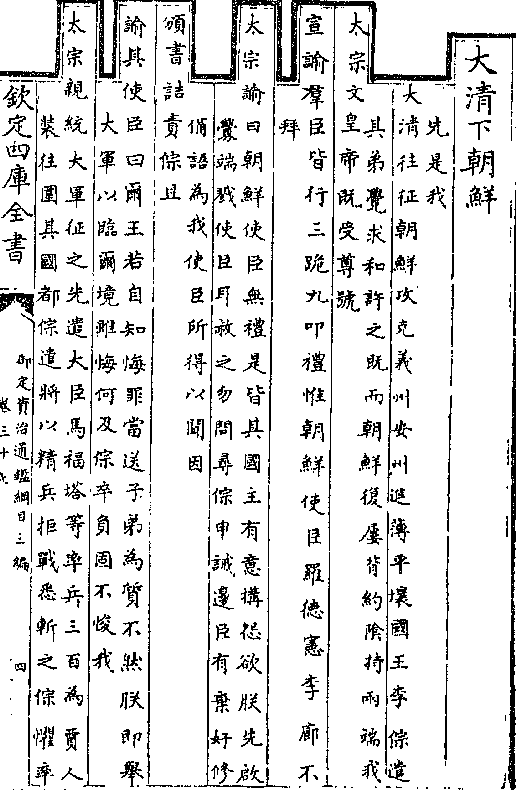 大清下朝鮮
先是我
大清往征朝鮮攻克義州安州進薄平壤國王李倧遣
其弟覺求和許之既而朝鮮復屢背約陰持兩端我
太宗文皇帝既受尊號
宣諭羣臣皆行三跪九叩禮惟朝鮮使臣羅德憲李廓不
拜
太宗諭曰朝鮮使臣無禮是皆其國主有意搆怨欲朕先啟
釁端戮使臣耳赦之勿問尋倧申誡邊臣有棄好修
備語為我使臣所得以聞因
頒書詰責倧且
諭其使臣曰爾王若自知悔罪當送子弟為質不然朕即舉
大軍以臨爾境雖悔何及倧卒負固不悛我
太宗親統大軍征之先遣大臣馬福塔等率兵三百為賈人
裝往圍其國都倧遣將以精兵拒戰悉斬之倧懼率
欽定四庫全書
御定資治通鑑綱目三編
卷三十
四